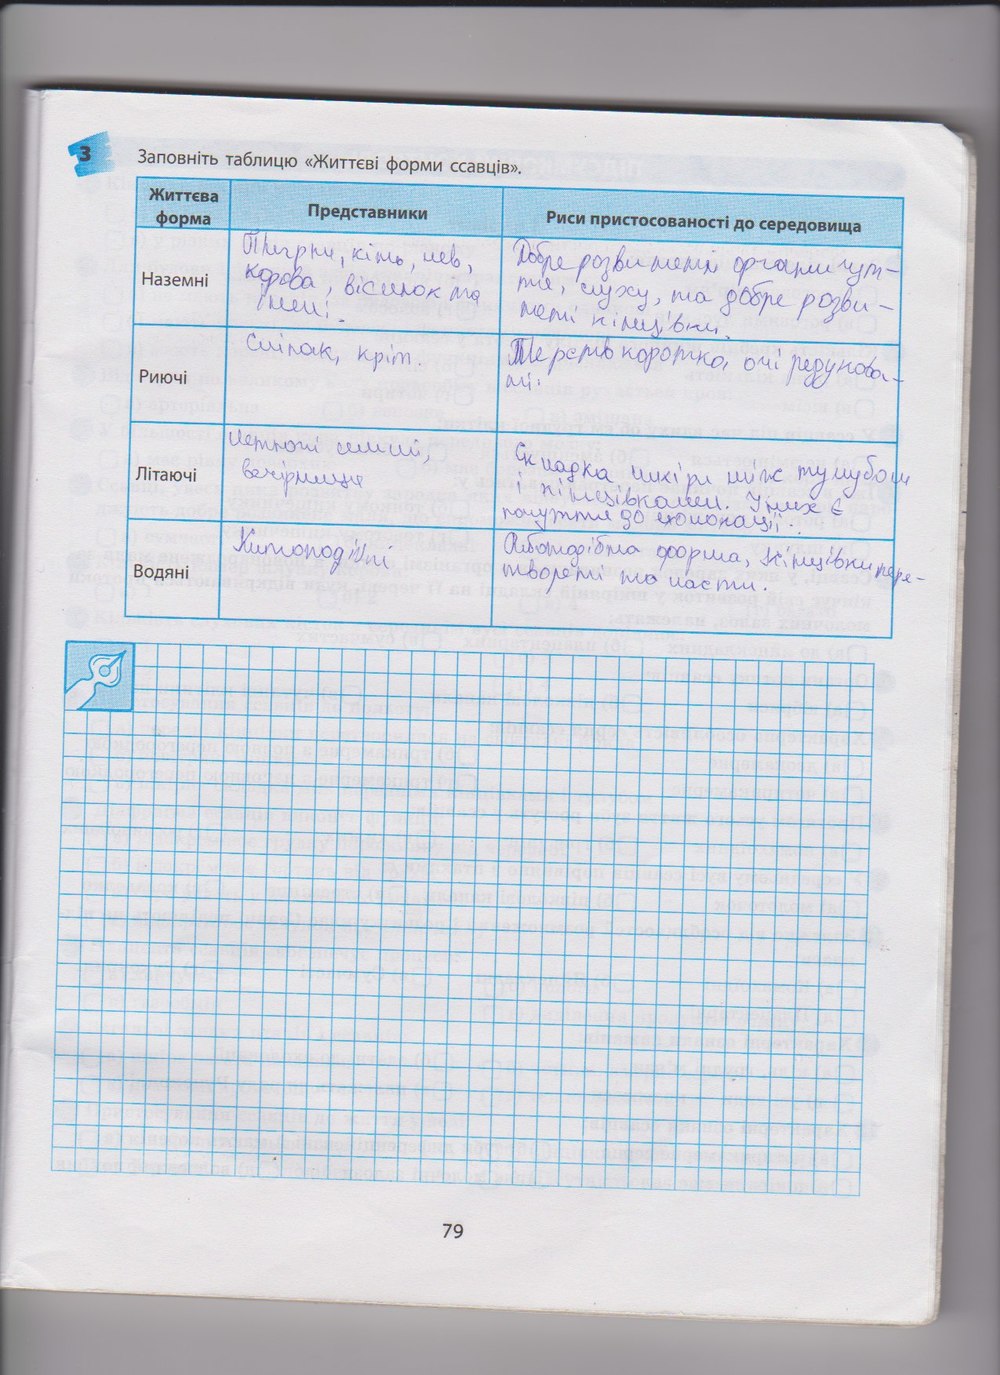 3
Заповніть таблицю «Життєві форми ссавців».
Життєва форма
Представники
Риси пристосованості до середовища
Наземні
Тигри, кіт, лев,
корова, віслюк та
інші.
Добре розвинені органи чут-
тя, слуху, та добре розви-
нені кінцівки.
Риючі
Сліпак, кріт.
Шерсть коротка, очі редукова-
ні.
Літаючі
вечірниця
Складка шкіри між тулубом
і кінцівками. У них є
почуття до ехолокації.
Водяні
Китоподібні
форма, кінцівки пере-
творені на ласти.
79